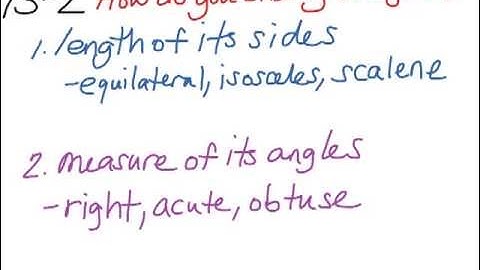 How do you
1. length of its sides
-equilateral, isosceles, scalene
2. measure of its angles
-right, acute, obtuse